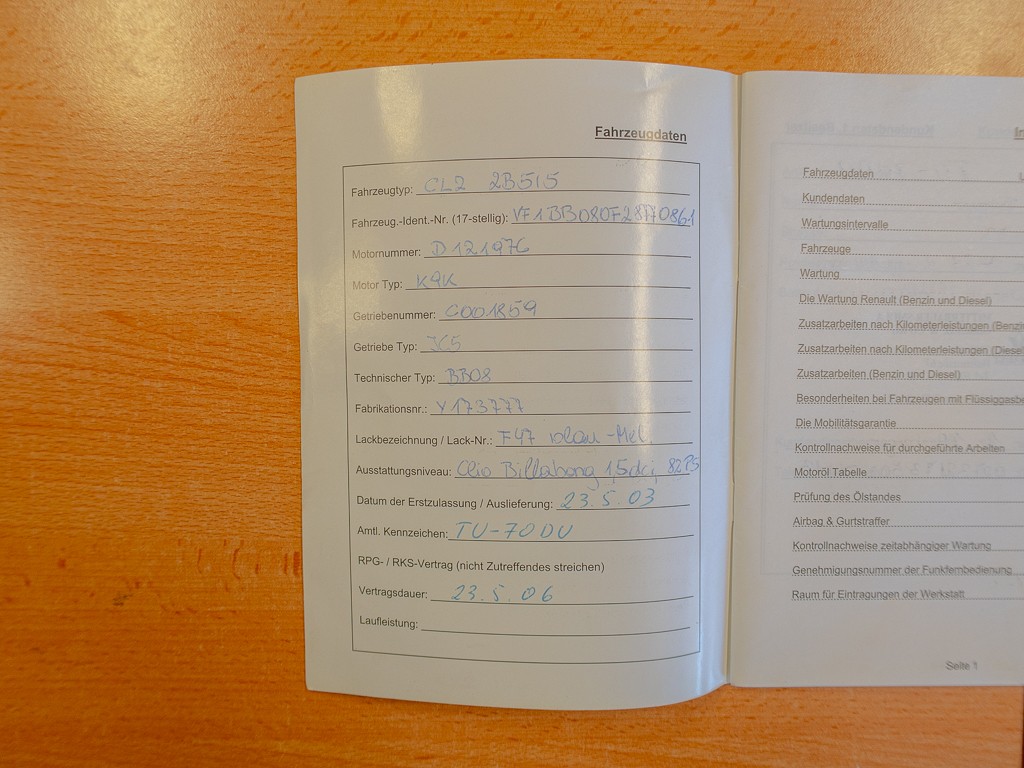 Fahrzeugdaten
Fahrzeugtyp: CL2 2B515
Fahrzeug.-Ident.-Nr. (17-stellig):
Motornummer: D121976
Motor Typ: K9K
Getriebenummer: C001859
Getriebe Typ: JC5
Technischer Typ: BB08
Fabrikationsnr.: Y173777
Lackbezeichnung / Lack-Nr.: F47 blau-Met.
Ausstattungsniveau: Clio Billabong 1,5dci, 82PS
Datum der Erstzulassung / Auslieferung: 23.5.03
Amtl. Kennzeichen: TU-70DU
RPG- / RKS-Vertrag (nicht Zutreffendes streichen)
Vertragsdauer: 23.5.06
Laufleistung:
Fahrzeugdaten
Kundendaten
Wartungsintervalle
Fahrzeuge
Wartung
Die Wartung Renault (Benzin und Diesel)
Zusatzarbeiten nach Kilometerleistungen (Benzi
Zusatzarbeiten nach Kilometerleistungen (Diese
Zusatzarbeiten (Benzin und Diesel)
Besonderheiten bei Fahrzeugen mit Flüssiggasbe
Die Mobilitätsgarantie
Kontrollnachweise für durchgeführte Arbeiten
Motoröl Tabelle
Prüfung des Ölstandes
Airbag & Gurtstraffer
Kontrollnachweise zeitabhängiger Wartung
Genehmigungsnummer der Funkfernbedienung
Raum für Eintragungen der Werkstatt
Seite 1